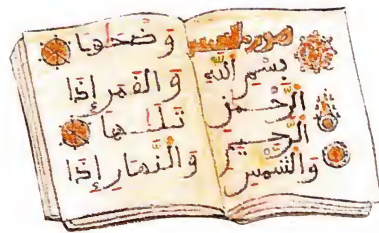 سورة الشمس
بِسْمِ اللّٰهِ
الرَّحْمٰنِ
الرَّحِيمِ
وَالشَّمْسِ
وَضُحَاهَا
وَالْقَمَرِ إِذَا
تَلَـٰهَا
وَالنَّهَارِ إِذَا